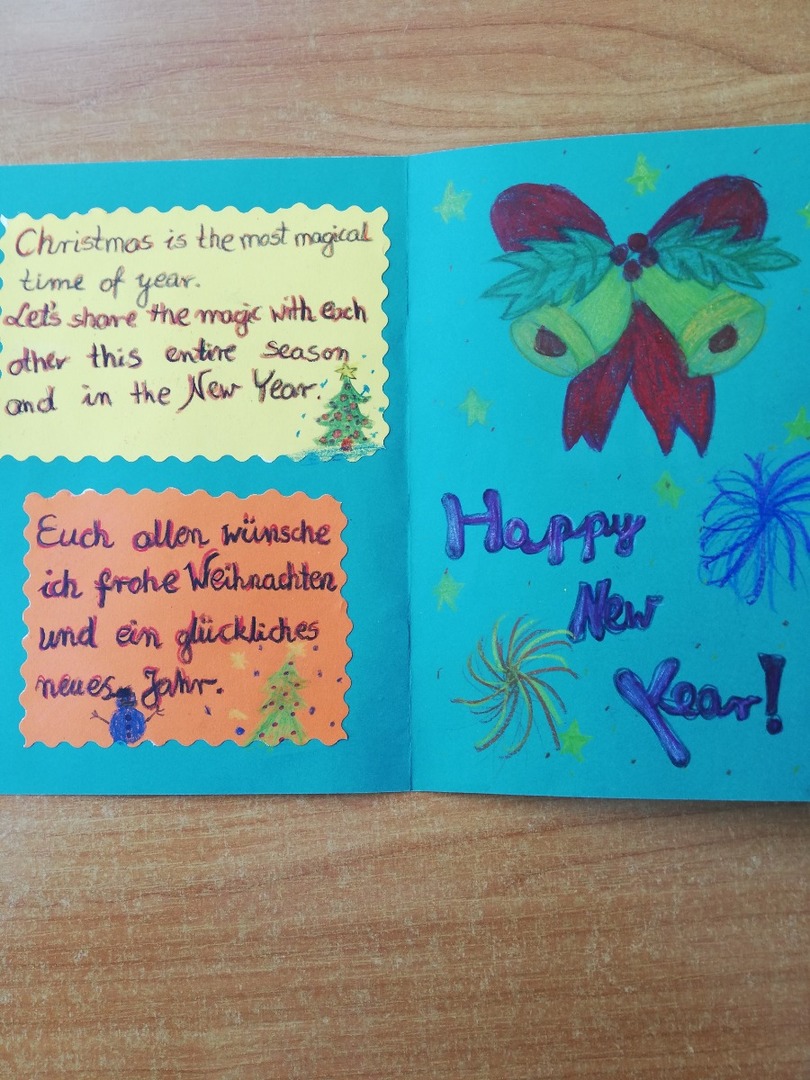 Christmas is the most magical
time of year.
Let's share the magic with each
other this entire season
and in the New Year.
Euch allen wünsche
ich frohe Weihnachten
und ein glückliches
neues Jahr.
Happy
New
Year!